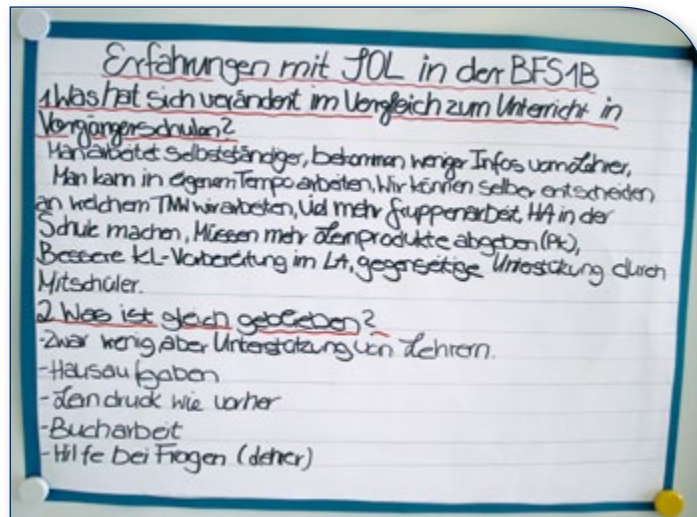 Erfahrungen mit SOL in der BFS1B
1. Was hat sich verändert im Vergleich zum Unterricht in
Vorgängerschulen?
Man arbeitet selbstständiger, bekommen weniger Infos vom Lehrer,
Man kann in eigenem Tempo arbeiten, Wir können selber entscheiden
an welchem TMW wir arbeiten, Viel mehr Gruppenarbeit, HA in der
Schule machen, Müssen mehr Lernprodukte abgeben (Pk),
Bessere KL-Vorbereitung im LA, gegenseitige Unterstützung durch
Mitschüler.
2. Was ist gleich geblieben?
-Zwar wenig aber Unterstützung von Lehrern.
-Hausaufgaben
-Lerndruck wie vorher
-Bucharbeit
-Hilfe bei Fragen (Lehrer)